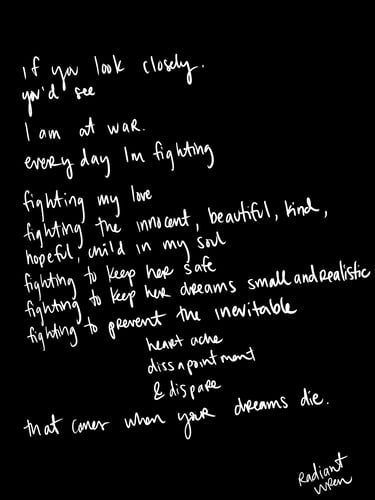 if you look closely.
you'd see
I am at war.
every day Im fighting
fighting my love
fighting the innocent, beautiful, kind,
hopeful, child in my soul
fighting to keep her safe
fighting to keep her dreams small and realistic
fighting to prevent the inevitable
heart ache
dissapointment
& dispare
that comes when your dreams die.
Radiant
wren